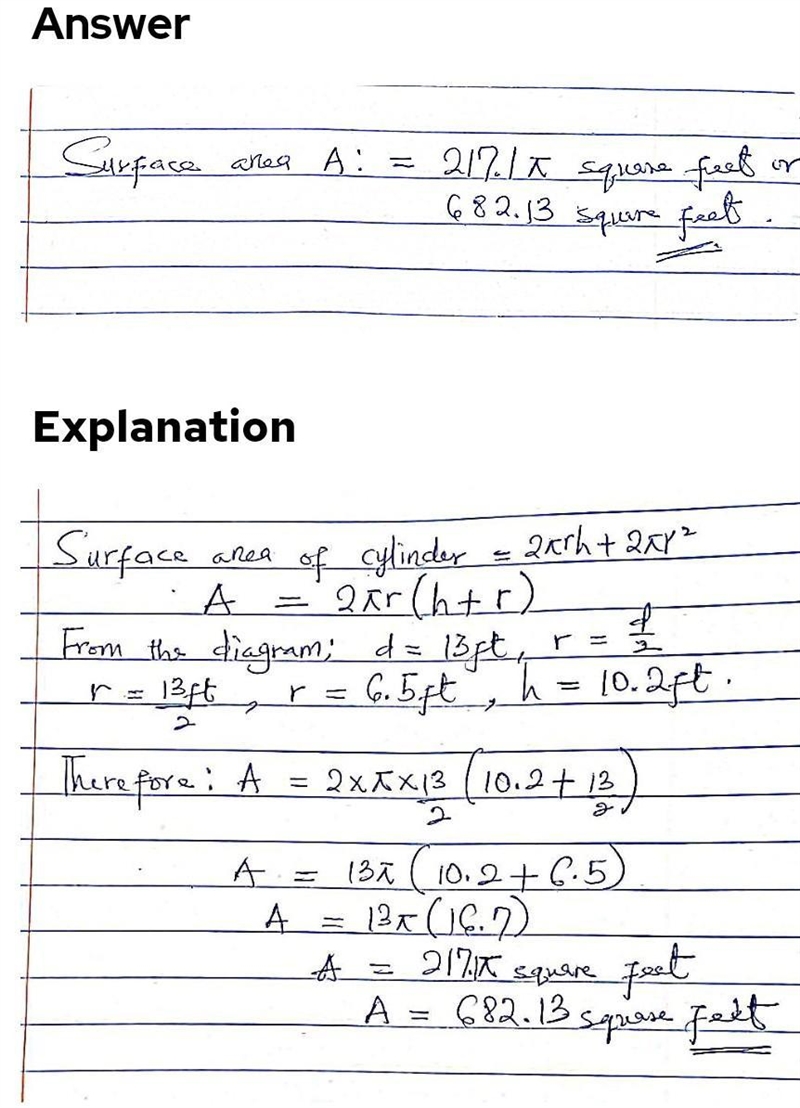 Answer
Surface area A: = 217.1π square feet or
682.13 square feet.
Explanation
Surface area of cylinder = 2πrh + 2πr²
A = 2πr(h+r)
From the diagram; d = 13ft, r = d/2
r = 13ft/2, r = 6.5ft, h = 10.2ft.
Therefore: A = 2×π×13/2 (10.2 + 13/2)
A = 13π(10.2 + 6.5)
A = 13π(16.7)
A = 217.1π square feet
A = 682.13 square feet